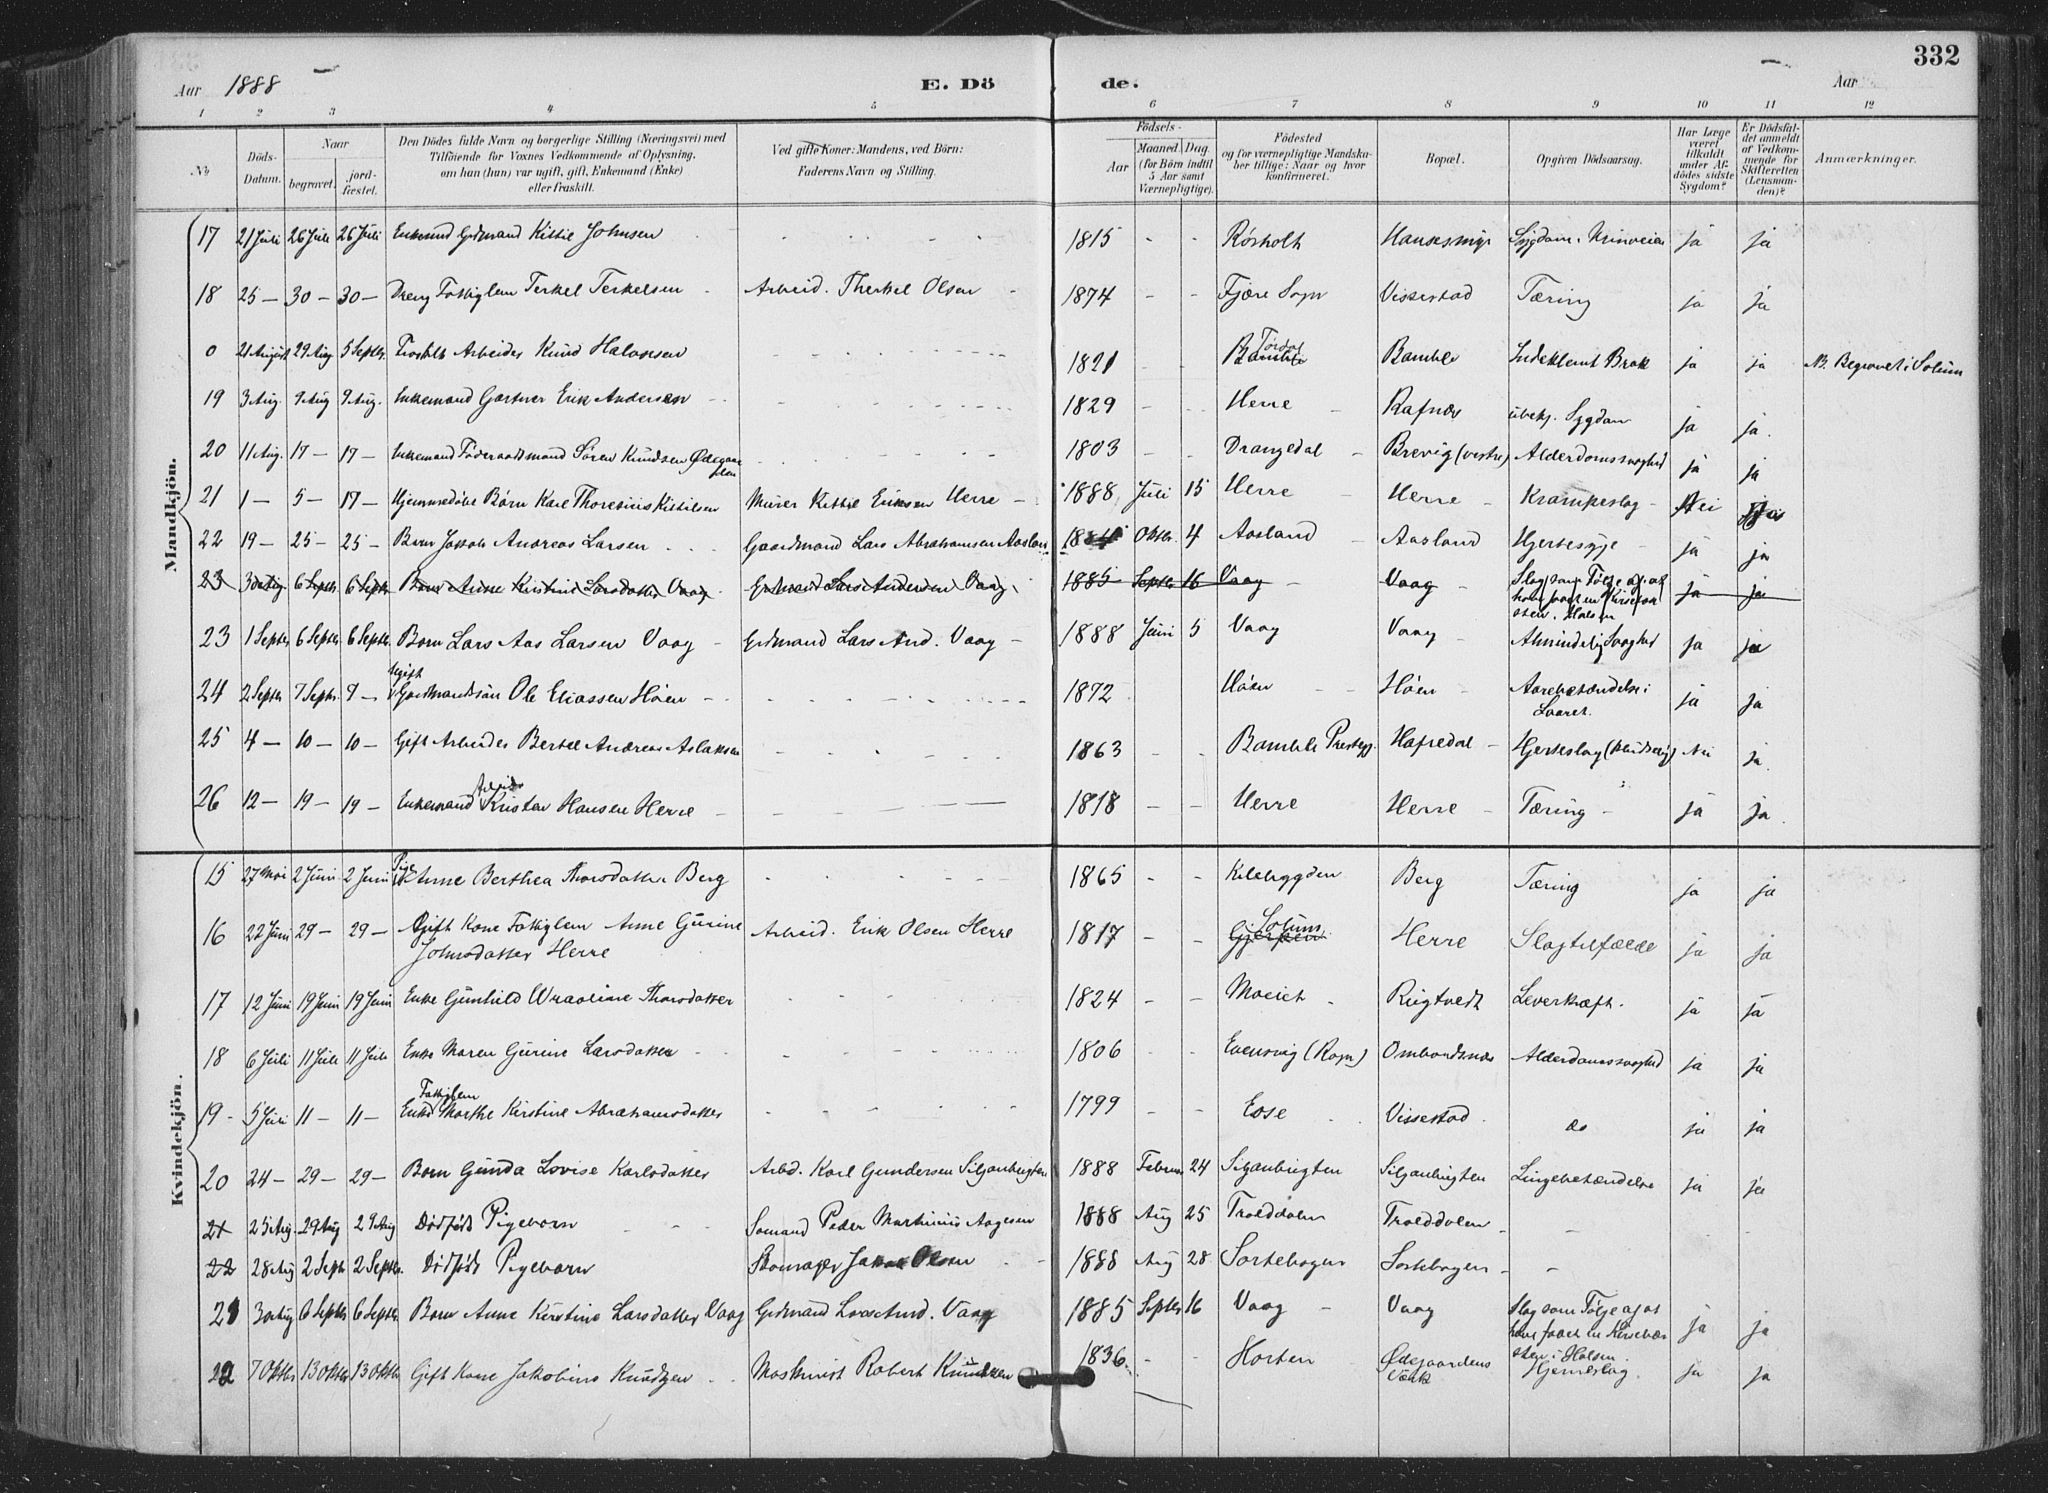 332
Aar 1888
E. Dö de.
Aar
1 2 3 4 5 6 7 8 9 10 11 12
No
Döds-Datum.
Naar
begravet.
jord-fæstet.
Den Dödes fulde Navn og borgerlige Stilling (Næringsvei) med
Tilföiende for Voxnes Vedkommende af Oplysning,
om han (hun) var ugift, gift, Enkemand (Enke)
eller fraskilt.
Ved gifte Koner: Mandens, ved Börn:
Faderens Navn og Stilling.
Födsels-
Aar
Maaned Dag
(for Börn indtil
5 Aar samt
Værnepligtige).
Födested
og for værnepligtige Mandska-
ber tillige: Naar og hvor
konfirmeret.
Bopæl.
Opgiven Dödsaarsag.
Har Læge
været
tilkaldt
under Af-
dödes sidste
Sygdom?
Er Dödsfal-
det anmeldt
af Vedkom-
mende for
Skifteretten
(Lensman-
den)?
Anmærkninger.
Mandkjön.
17 21 Juli 26 Juli 26 Juli Enkemand Grdmand Kittil Johnsen 1815 - - Rösholt Hansesmyr Sygdom i Urinveie ja ja
18 25 - 30 - 30 - Dreng Fattiglem Terkel Terkelsen - Arbeid. Therkel Olsen - 1874 - - Fjære Sogn Vissestad Tæring ja ja
0 21 August 29 Aug 5 Septbr. Fraskilt Arbeider Knud Halvorsen 1821 Tördal Bamble Bamble Indeklemt Brok ja ja NB. Begravet i Solum
19 3 Aug. 9 Aug 9 Aug. Enkemand Gartner Erik Andersen 1829 - Herre - Rafnæs ubekj. Sygdom ja ja.
20 11 Aug. 17 - 17 - Enkemand Föderaadsmand Sören Knudsen Ödegaarden 1803 - Drangedal - Brevig (vestre) Alderdomssvaghed ja ja
21 1 - 5 - 17 - Hjemmedöbt Barn Karl Thoresius Kittilsen Murer Kittil Eriksen Herre - 1888 Juli 15 Herre - Herre - Krampeslag - Nei
22 19 - 25 - 25 - Barn Jakob Andreas Larsen Gaardmand Lars Abrahamsen Aasland Oktbr 4 Aasland - Aasland Hjertesyge - ja ja
23 30 Aug. 6 Septb 6 Septb Barn Anne Kirstine Larsdatter Vaag. Grdmand Lars Andersen Vaag. 1885 Septbr 16 Vaag - Vaag - Slag som Fölge af at have faaet en Kirsebærsten i Halsen ja ja
23 1 Septbr 6 Septbr 6 Septbr. Barn Lars Aas Larsen Vaag - Grdmand Lars And. Vaag - 1888 Juni 5 Vaag Vaag - Almindelig Svaghed ja ja
24 2 Septbr 7 Septbr. 7 - Ugift Gaardmandssön Ole Eliassen Höen - 1872 Höen - - Höen - Aarebetændelse i Laaret. ja ja
25 4 - 10 - 10 - Gift Arbeider Bertel Andreas Aslaksen 1863 - - Bamble Prestegj. Hafredal - Hjerteslag Nei ja.
26 12 - 19 - 19 - Enkemand Arbeider Kristen Hansen Herre - 1818 - - Herre Herre - Tæring - ja ja.
Kvindekjön.
15 27 Mai 2 Juni 2 Juni Pige Anne Berthea Thorsdatter Berg 1865 - - Kilebygden Berg Tæring ja ja
16 22 Juni 29 - 29 - Gift Kone Fattiglem Anne Gurine Johnsdatter Herre Arbeid. Erik Olsen Herre 1817 - - Solum Gjerpen Herre Slagtilfælde ja ja
17 12 Juni 19 Juni 19 Juni Enke Gunhild Thorsdatter 1824 - - - Rugtvedt Leverkræft. ja ja
18 6 Juli 11 Juli 11 Juli Enke Maren Gurine Larsdatter 1806 - - Ombordsnæs Alderdomssvaghed ja ja
19 - 5 Juli 11 - 11 - Fattiglem Enke Marthe Kirstine Abrahamsdatter 1799 - - Eose Vissestad. do ja ja
20 24 - 29 - 29 - Barn Gunda Lovise Karlsdatter Arbd. Karl Gundersen Siljanbugten 1888 Februar 24 Siljanbugten Siljanbugten Lungebetændelse ja ja
21 25 Aug. 29 Aug 29 Aug Dödfödt Pigebarn - Sömand Peder Martinius Aagesen 1888 Aug 25 Trolddalen Trolddalen - -
22 28 Aug 2 Septb 2 Septbr. Dödfödt Pigebarn Skomager Olsen 1888 Aug 28 Sortebogen Sortebogen - -
21 30 Aug 6 Septbr 6 Septbr Barn Anne Kirstine Larsdatter Vaag Grdmand Lars And. Vaag 1885 Septbr 16 Vaag - Vaag Slag som Fölge af at have faaet en Kirsebærsten i Halsen. ja ja
22 7 Oktbr 13 Oktbr 13 Oktbr. Gift Kone Jakobine Knudtzen Maskinist Robert Knudtzen 1836. - - Horten Ödegaardens Værk Hjerneslag. ja ja